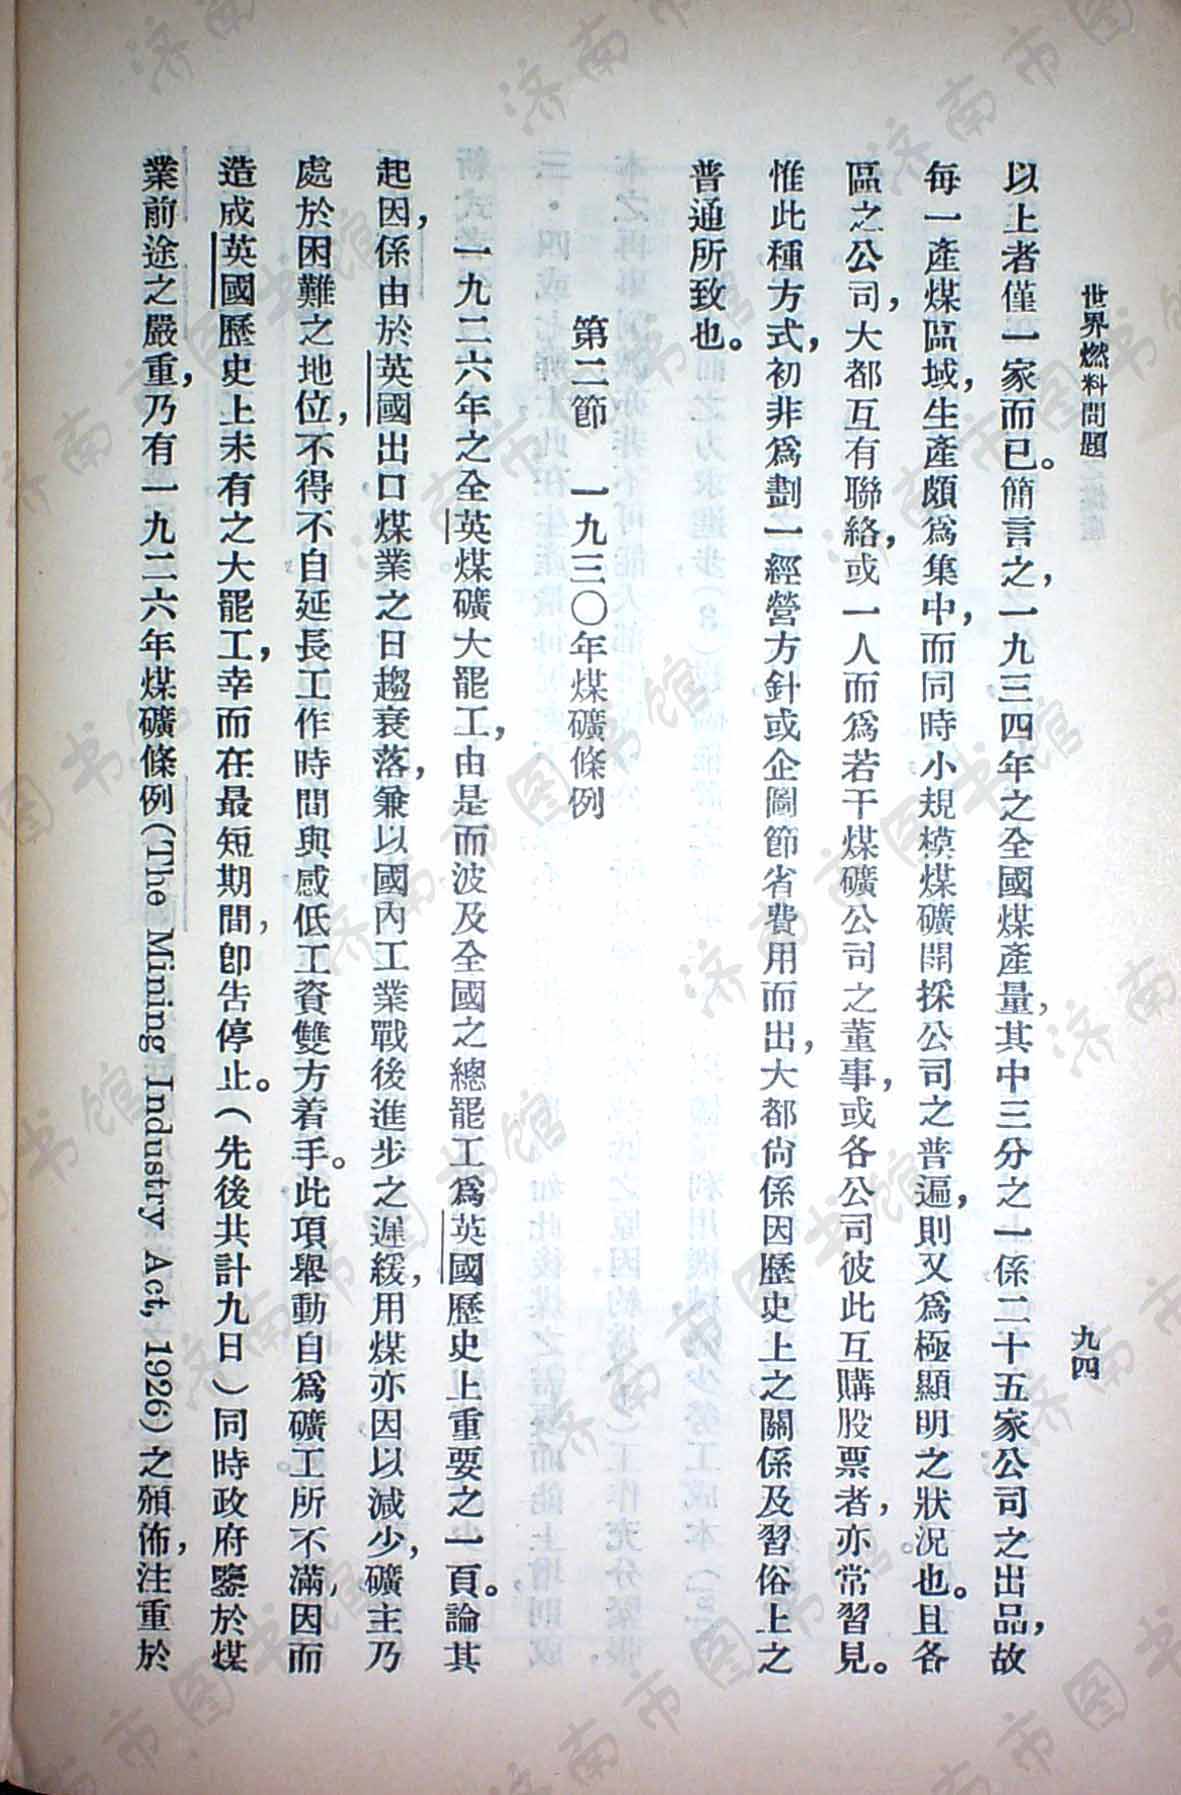 世界燃料問題
九四
以上者僅一家而已。簡言之，一九三四年之全國煤產量，其中三分之一係二十五家公司之出品，故
每一產煤區域，生產頗爲集中，而同時小規模煤礦開採公司之普遍，則又爲極顯明之狀況也。且各
區之公司，大都互有聯絡，或一人而爲若干煤礦公司之董事，或各公司彼此互購股票者，亦常習見。
惟此種方式，初非爲劃一經營方針或企圖節省費用而出，大都尙係因歷史上之關係及習俗上之
普通所致也。
第二節　一九三〇年煤礦條例
一九二六年之全英煤礦大罷工，由是而波及全國之總罷工爲英國歷史上重要之一頁。論其
起因，係由於英國出口煤業之日趨衰落，兼以國內工業戰後進步之遲緩，用煤亦因以減少，礦主乃
處於困難之地位，不得不自延長工作時間與減低工資雙方着手。此項舉動自爲礦工所不滿，因而
造成英國歷史上未有之大罷工，幸而在最短期間，卽告停止。（先後共計九日）同時政府鑒於煤
業前途之嚴重，乃有一九二六年煤礦條例(The Mining Industry Act, 1926)之頒佈，注重於
济南市图书馆